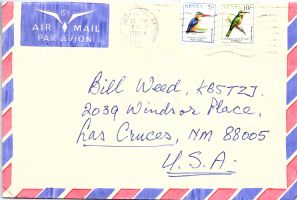 BY
AIR MAIL
PAR AVION
KENYA 7/-
KENYA 10/-
Bill Weed, KB5TZJ.
2039 Windsor Place,
Las Cruces, NM 88005
U.S.A.